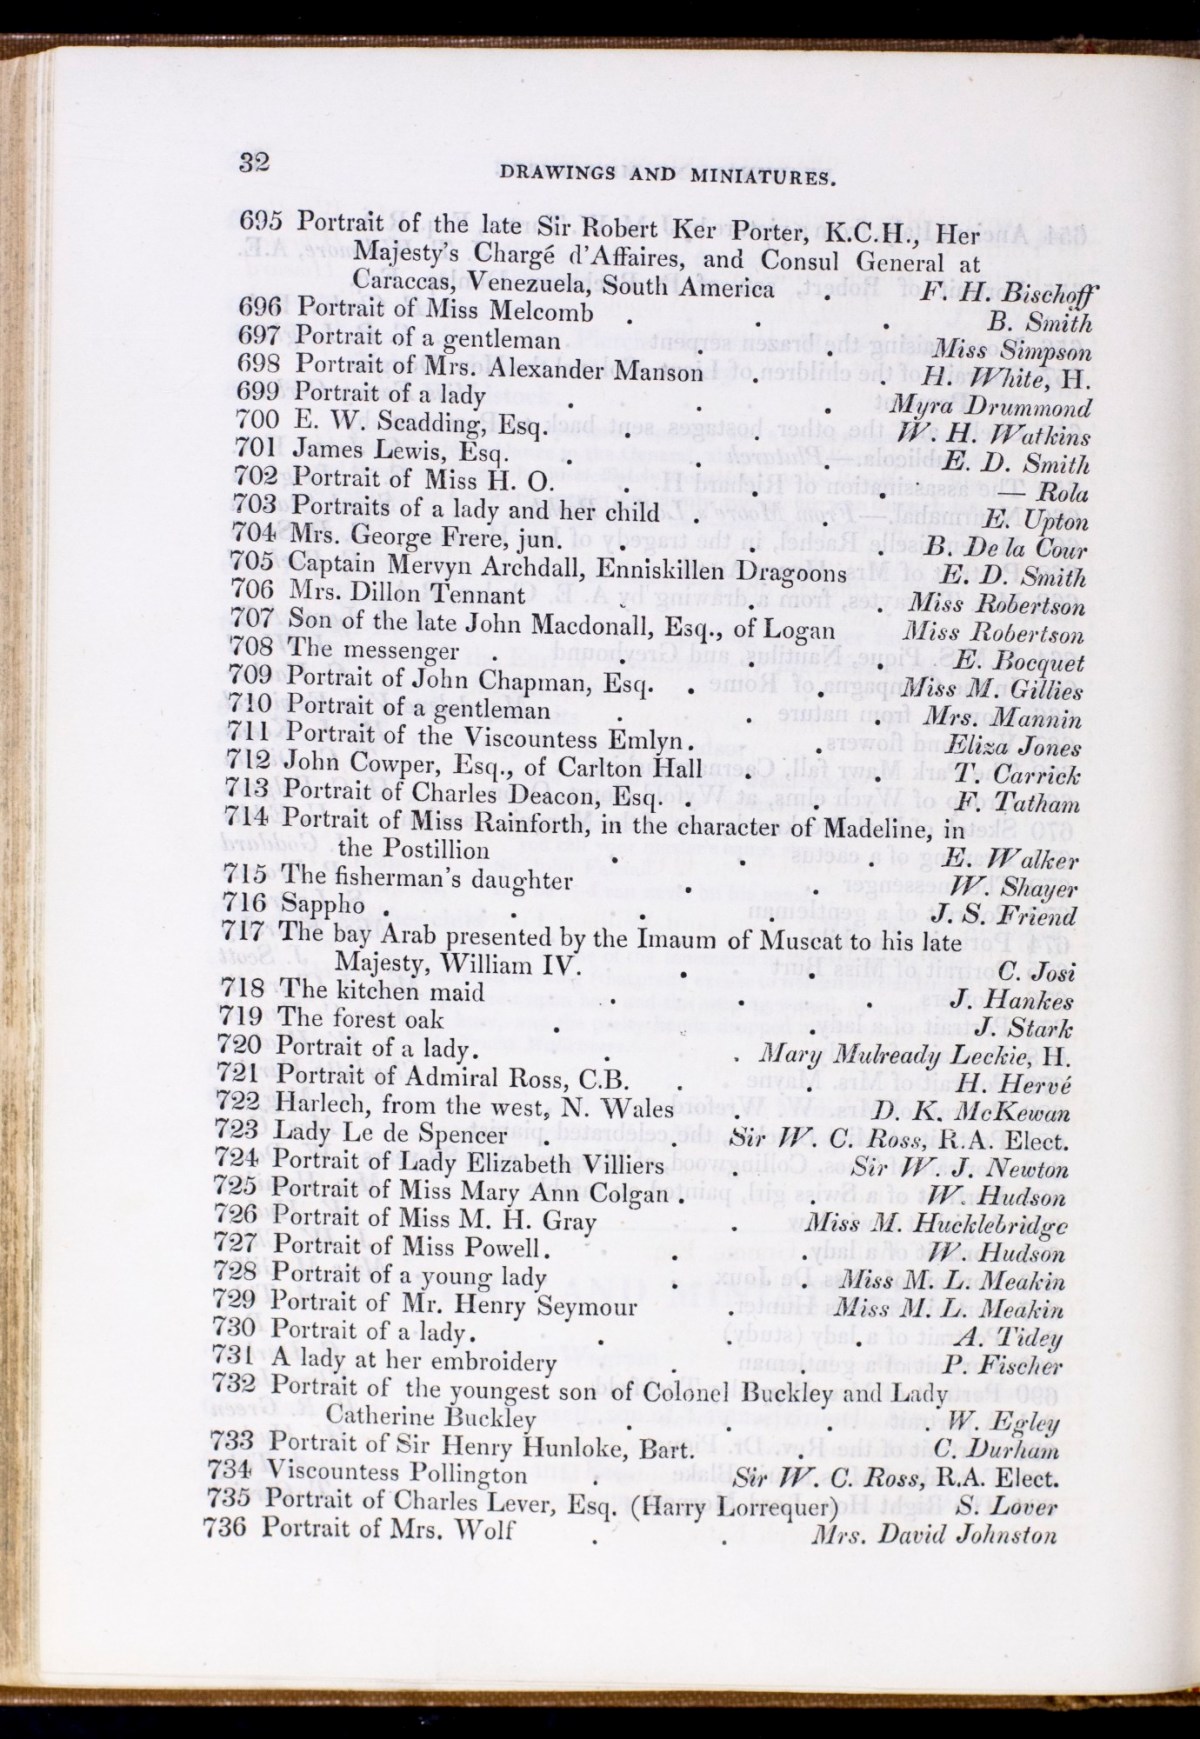 32
DRAWINGS AND MINIATURES.
695 Portrait of the late Sir Robert Ker Porter, K.C.H., Her
Majesty's Chargé d'Affaires, and Consul General at
Caraccas, Venezuela, South America . F. H. Bischoff
696 Portrait of Miss Melcomb . . . B. Smith
697 Portrait of a gentleman . . Miss Simpson
698 Portrait of Mrs. Alexander Manson . . H. White, H.
699 Portrait of a lady . . . Myra Drummond
700 E. W. Scadding, Esq. . . W. H. Watkins
701 James Lewis, Esq. . . . E. D. Smith
702 Portrait of Miss H. O. . . . — Rola
703 Portraits of a lady and her child . . E. Upton
704 Mrs. George Frere, jun. . . . B. De la Cour
705 Captain Mervyn Archdall, Enniskillen Dragoons E. D. Smith
706 Mrs. Dillon Tennant . . . Miss Robertson
707 Son of the late John Macdonall, Esq., of Logan Miss Robertson
708 The messenger . . . . E. Bocquet
709 Portrait of John Chapman, Esq. . . Miss M. Gillies
710 Portrait of a gentleman . . . Mrs. Mannin
711 Portrait of the Viscountess Emlyn . . Eliza Jones
712 John Cowper, Esq., of Carlton Hall . . T. Carrick
713 Portrait of Charles Deacon, Esq. . . F. Tatham
714 Portrait of Miss Rainforth, in the character of Madeline, in
the Postillion . . . E. Walker
715 The fisherman's daughter . . W. Shayer
716 Sappho . . . . J. S. Friend
717 The bay Arab presented by the Imaum of Muscat to his late
Majesty, William IV. . . C. Josi
718 The kitchen maid . . . J. Hankes
719 The forest oak . . . J. Stark
720 Portrait of a lady. . . Mary Mulready Leckie, H.
721 Portrait of Admiral Ross, C.B. . . H. Hervé
722 Harlech, from the west, N. Wales . D. K. McKewan
723 Lady Le de Spencer . . Sir W. C. Ross, R.A. Elect.
724 Portrait of Lady Elizabeth Villiers . Sir W. J. Newton
725 Portrait of Miss Mary Ann Colgan . . W. Hudson
726 Portrait of Miss M. H. Gray . Miss M. Hucklebridge
727 Portrait of Miss Powell. . . W. Hudson
728 Portrait of a young lady . . Miss M. L. Meakin
729 Portrait of Mr. Henry Seymour . Miss M. L. Meakin
730 Portrait of a lady. . . . A. Tidey
731 A lady at her embroidery . . . P. Fischer
732 Portrait of the youngest son of Colonel Buckley and Lady
Catherine Buckley . . . . W. Egley
733 Portrait of Sir Henry Hunloke, Bart. . C. Durham
734 Viscountess Pollington . Sir W. C. Ross, R.A. Elect.
735 Portrait of Charles Lever, Esq. (Harry Lorrequer) S. Lover
736 Portrait of Mrs. Wolf . . Mrs. David Johnston